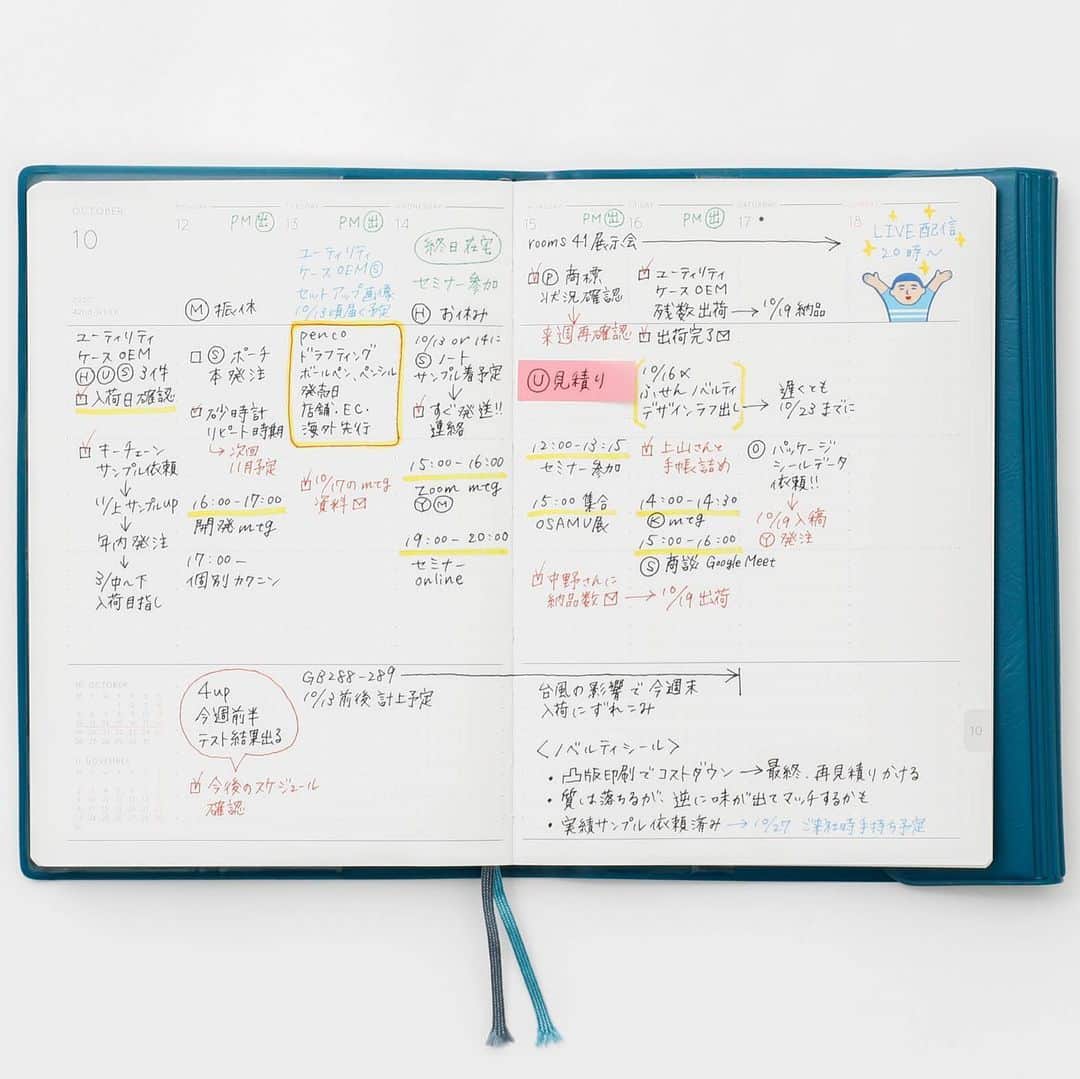 OCTOBER
10
ユーティリティ
ケース OEM
Ⓗ Ⓤ Ⓢ 3件
入荷日確認
キーチェーン
サンプル依頼
↓
11/上 サンプルup
↓
年内発注
↓
3/中〜下
入荷目指し
12
PM 出
Ⓜ 振休
Ⓢ ポーチ
本発注
砂時計
リピート時期
↳ 次回
11月予定
16:00-17:00
開発 mtg
17:00-
個別カクニン
13
PM 出
ユーティリティ
ケース OEM Ⓢ
セットアップ画像
10/13頃届く予定
penco
ドラフティング
ボールペン、ペンシル
発売日
店舗・EC・
海外先行
10/17のmtg
資料
WEDNESDAY
14
終日在宅
セミナー参加
Ⓗ お休み
10/13 or 14に
Ⓢ ノート
サンプル着予定
すぐ発送!!
連絡
15:00-16:00
Zoom mtg
Ⓨ Ⓜ
19:00-20:00
セミナー
online
15
PM 出
rooms 41 展示会
Ⓟ 商標
状況確認
↓
来週再確認
Ⓤ 見積り
12:00-13:15
セミナー参加
15:00 集合
OSAMU展
中野さんに
納品数 → 10/19 出荷
16
PM 出
ユーティリティ
ケース OEM
残数出荷 → 10/19 納品
出荷完了
10/16〆
ふせんノベルティ
デザインラフ出し → 遅くとも
10/23までに
上山さんと
手帳詰め
14:00-14:30
Ⓚ mtg
15:00-16:00
Ⓢ 商談 Google Meet
SATURDAY
17
Ⓞ パッケージ
シールデータ
依頼!!
↓
10/19 入稿
Ⓨ 発注
18
LIVE配信
20時〜
10 OCTOBER
11 NOVEMBER
4up
今週前半
テスト結果出る
今後のスケジュール
確認
GB288-289
10/13前後 計上予定
台風の影響で今週末
入荷にずれこみ
〈ノベルティシール〉
・凸版印刷でコストダウン → 最終、再見積りかける
・質は落ちるが、逆に味が出てマッチするかも
・実績サンプル依頼済み → 10/27 ご来社時手持ち予定
10